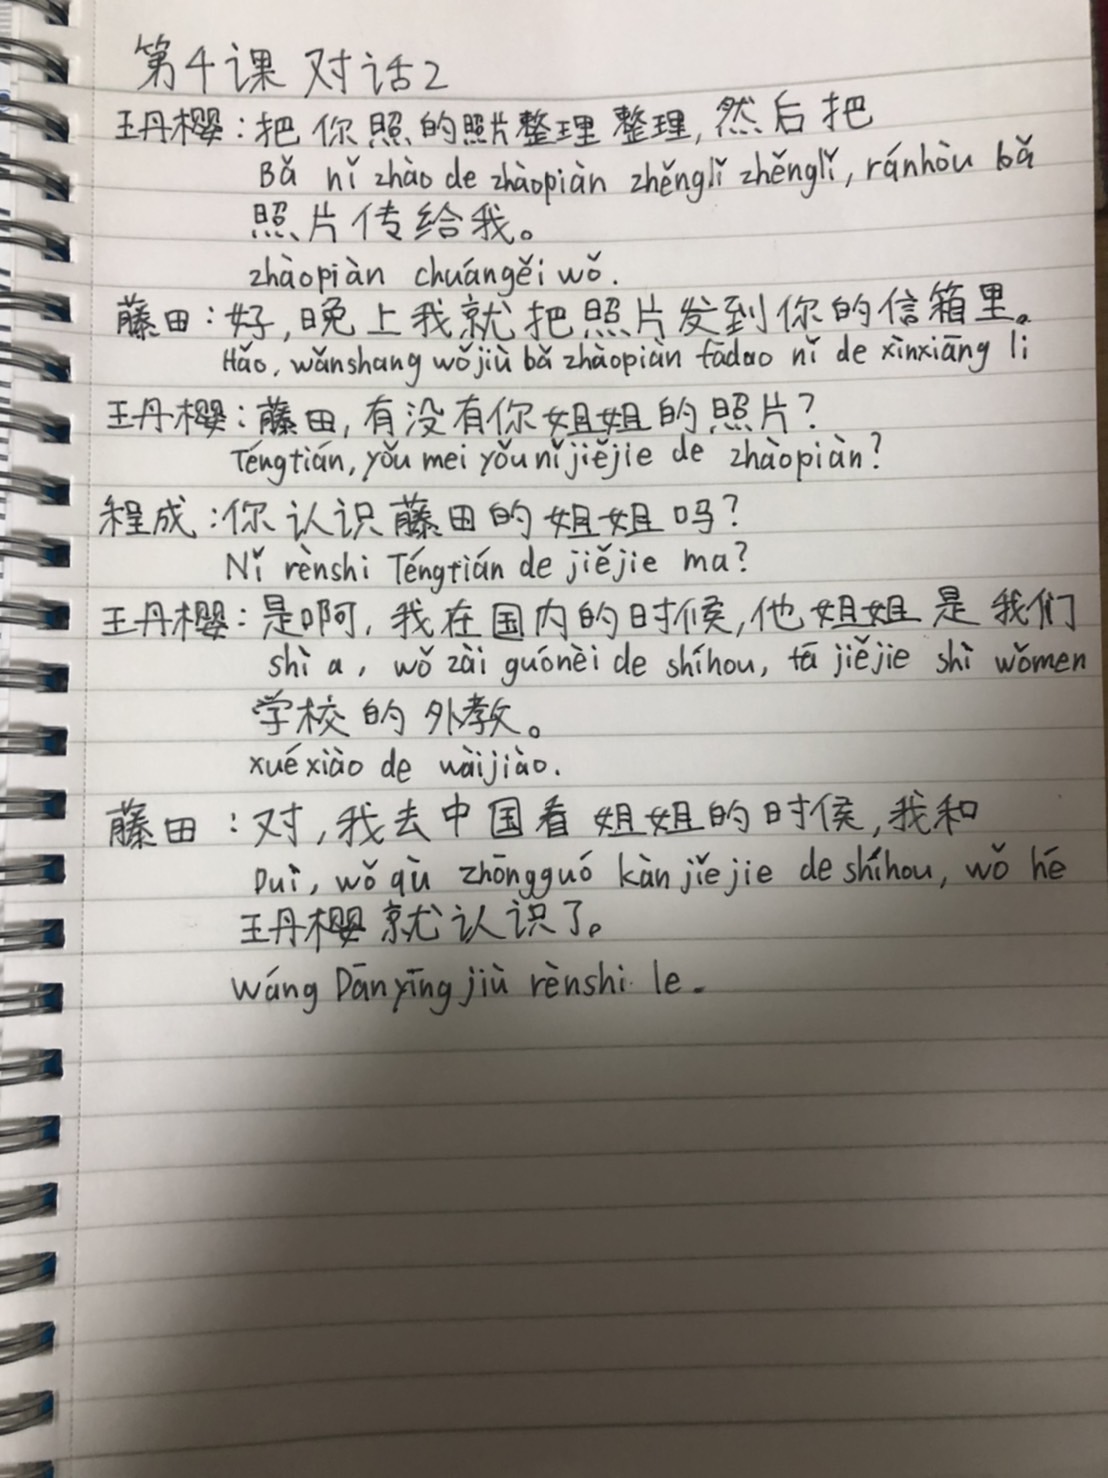 第4课 对话2
王丹樱：把你照的照片整理整理，然后把
Bǎ nǐ zhào de zhàopiàn zhěnglǐ zhěnglǐ, ránhòu bǎ
照片传给我。
zhàopiàn chuángěi wǒ.
藤田：好，晚上我就把照片发到你的信箱里。
Hǎo, wǎnshang wǒ jiù bǎ zhàopiàn fādao nǐ de xìnxiāng li
王丹樱：藤田，有没有你姐姐的照片？
Téngtián, yǒu mei yǒu nǐ jiějie de zhàopiàn?
程成：你认识藤田的姐姐吗？
Nǐ rènshi Téngtián de jiějie ma?
王丹樱：是啊，我在国内的时候，他姐姐是我们
shì a, wǒ zài guónèi de shíhou, tā jiějie shì wǒmen
学校的外教。
xuéxiào de wàijiào.
藤田：对，我去中国看姐姐的时候，我和
Duì, wǒ qù zhōngguó kàn jiějie de shíhou, wǒ hé
王丹樱就认识了。
Wáng Dānyīng jiù rènshi le.